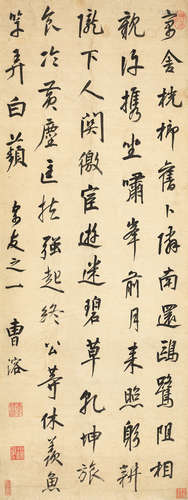 寓舍桄榔舊卜隣南還鷗鷺阻相
親許攜坐嘯峯前月來照躬耕
隴下人関徼宦遊迷碧草乾坤旅
食冷黃塵匡扶強起終公等休羨魚
竿弄白蘋 寄友之一 曹溶